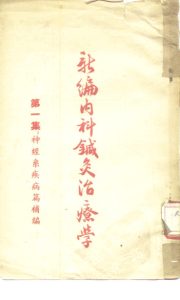 新編內科鍼灸治療學
第一集 神經系疾病篇補編